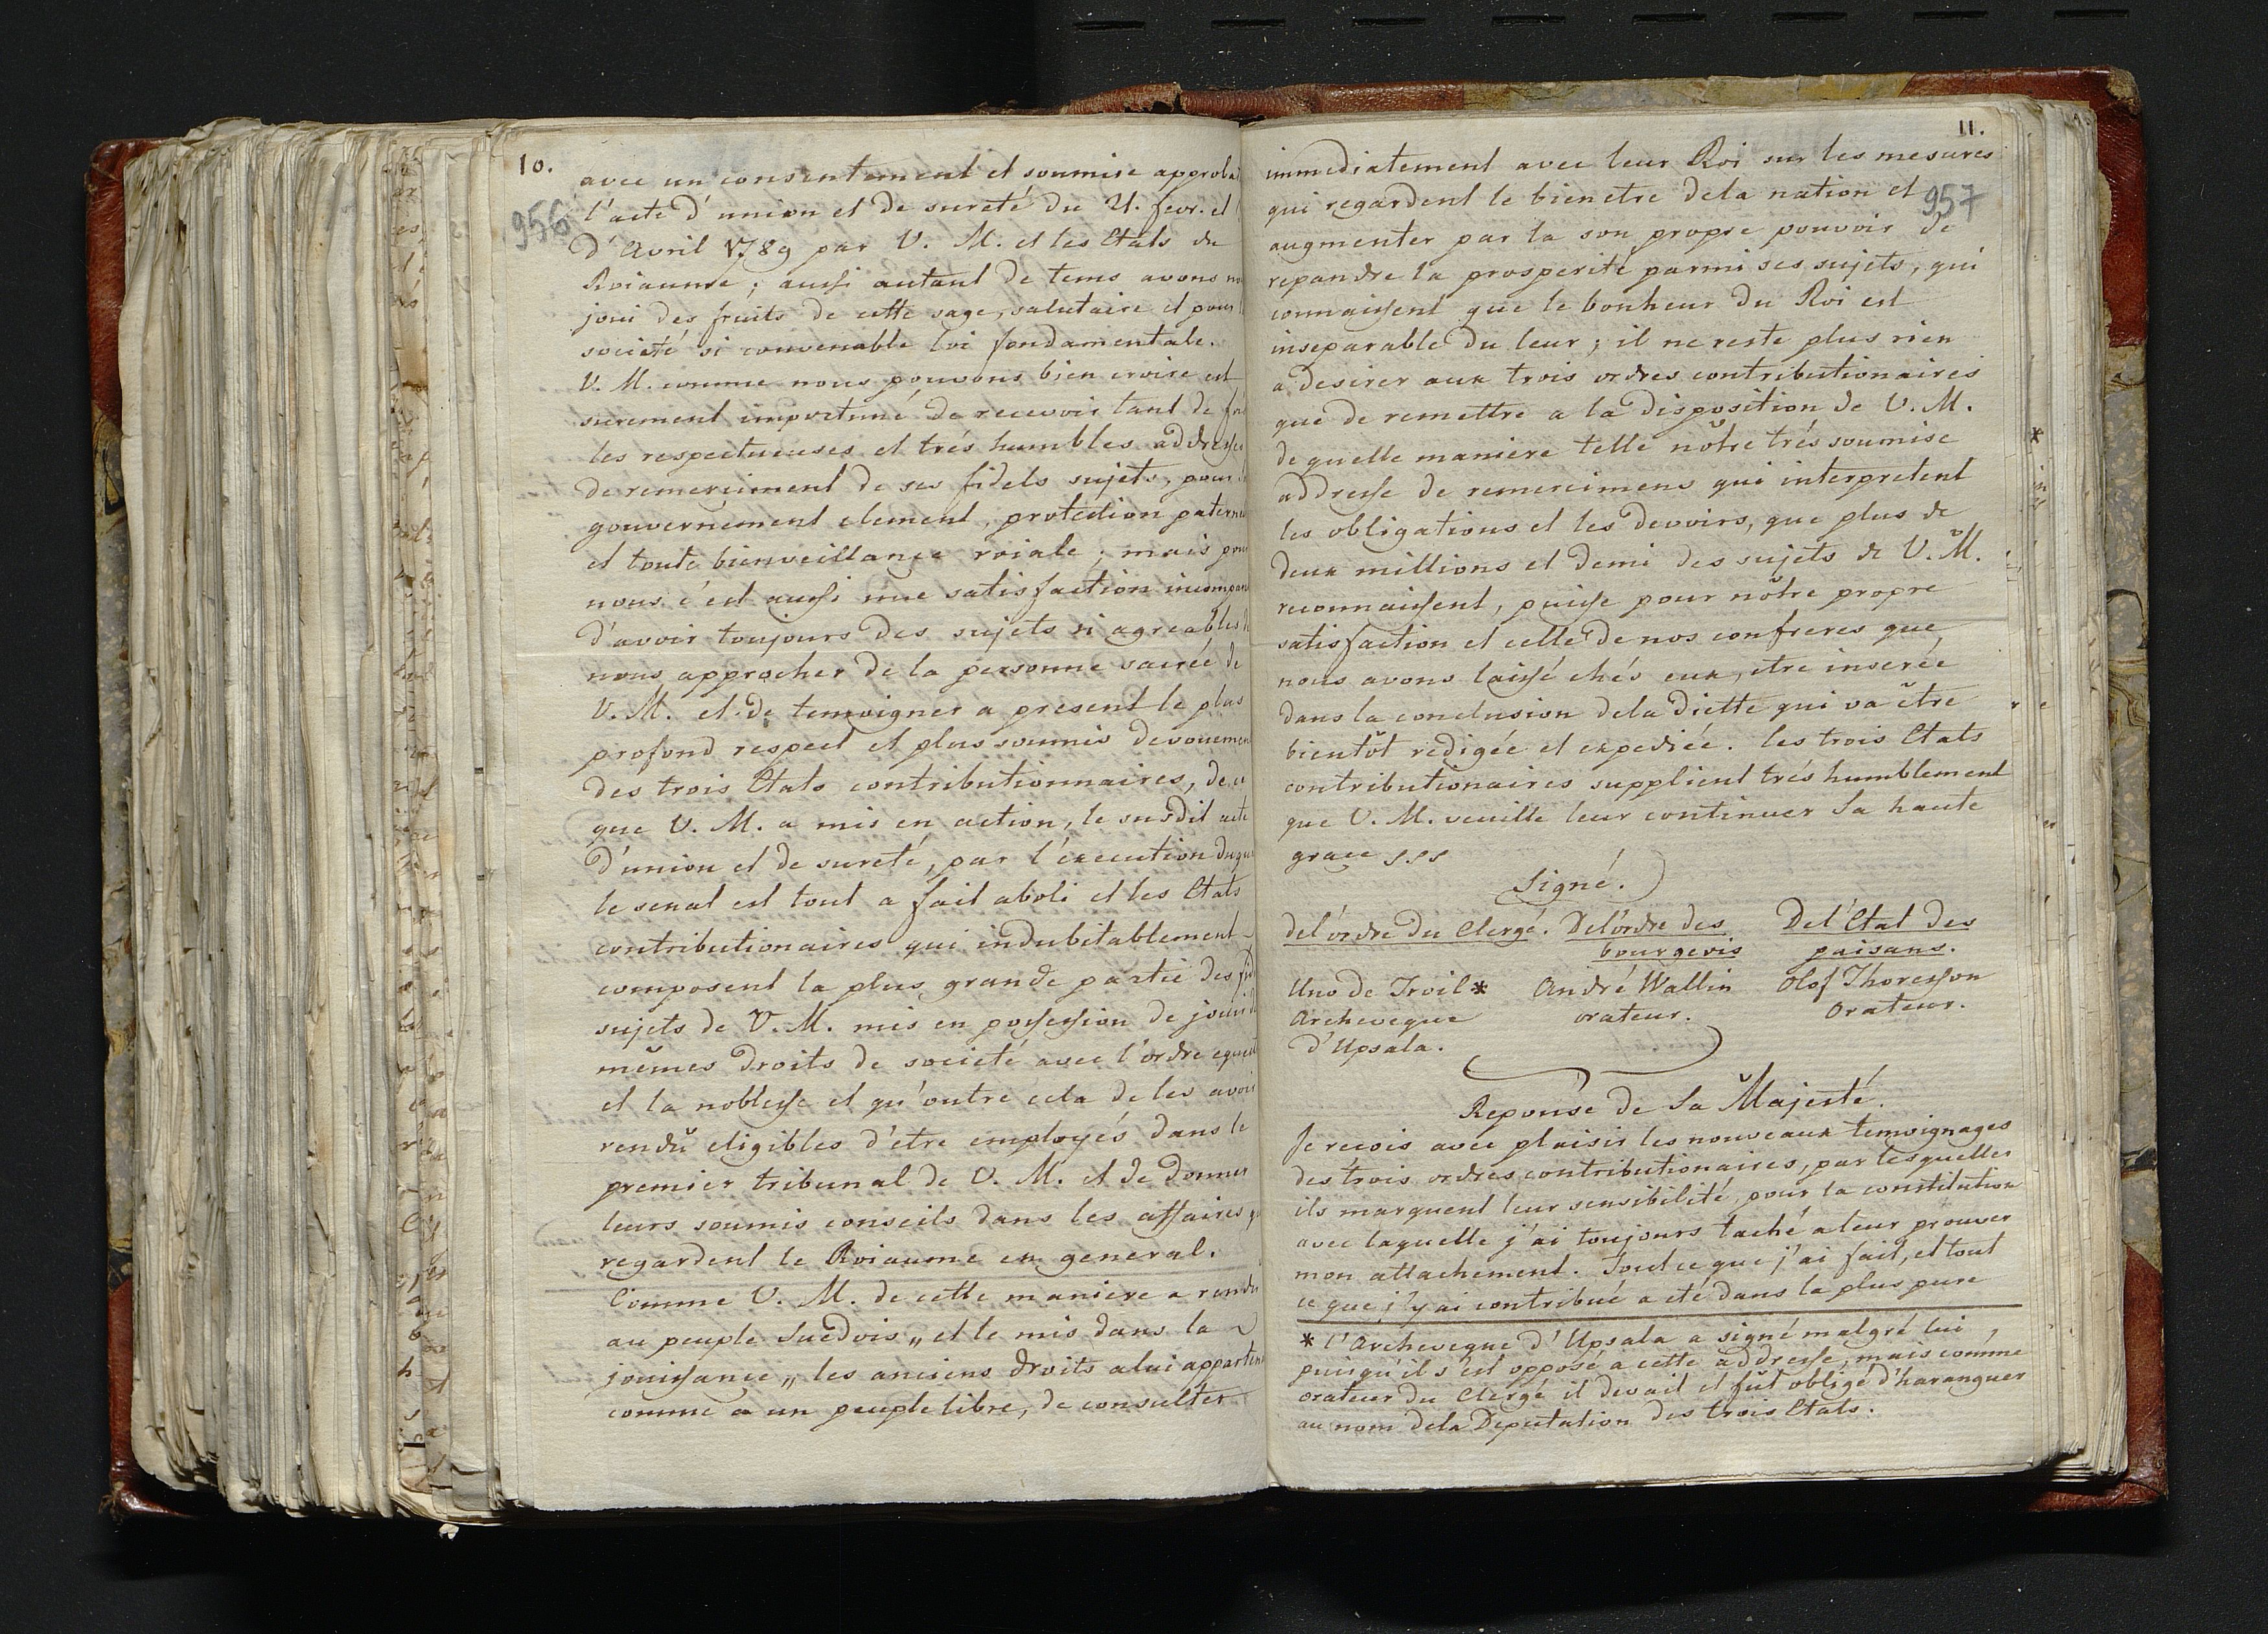 10.
956
avec un consentement et soumise approba
l'acte d'union et de sureté du 21. fevr. et
d'Avril 1789 par V. M. et les Etats du
Roiaume; aussi autant de tems avons
joui des fruits de cette sage, salutaire et pour
societé si convenable loi fondamentale.
V. M. comme nous pouvons bien croire est
surement importuné de recevoir tant de
les respectueuses et trés humbles addresses
de remerciment de ses fidels sujets, pour
gouvernement clement, protection paterne
et toute bienveillance roiale; mais pour
nous c'est aussi une satisfaction incompar
d'avoir toujours des sujets si agreables
nous approcher de la personne sacrée de
V. M. et de temoigner a present le plus
profond respect et plus soumis devouemen
des trois Etats contributionnaires, de ce
que V. M. a mis en action, le susdit acte
d'union et de sureté, par l'execution duqu
le senat est tout a fait aboli et les Etats
contributionaires qui indubitablement
composent la plus grande partie des
sujets de V. M. mis en possession de jouir
mêmes droits de societé avec l'ordre equest
et la noblesse et qu'outre cela de les avoir
rendŭ eligibles d'etre employés dans le
premier tribunal de V. M. et de donner
leurs soumis conseils dans les affaires
regardent le Roiaume en general.
Comme V. M. de cette maniere a rendu
au peuple Suedois „et le mis dans la
jouissance„ les anciens droits a lui apparten
comme a un peuple libre, de consulter
11.
957
immediatement avec leur Roi sur les mesures
qui regardent le bienetre dela nation et
augmenter par la son propre pouvoir de
repandre la prosperité parmi ses sujets, qui
connaissent que le bonheur du Roi est
inseparable du leur; il ne reste plus rien
a desirer aux trois ordres contributionaires
que de remettre a la disposition de V. M.
de quelle maniere telle nôtre trés soumise
addresse de remercimens qui interpretent
les obligations et les devoirs, que plus de
deux millions et demi des sujets de V. M.
reconnaissent, puisse pour nôtre propre
satisfaction et celle de nos confreres que
nous avons laissé chés eux, etre inserée
dans la conclusion dela Diette qui va être
bientôt redigée et expediée. les trois Etats
contributionaires supplient trés humblement
que V. M. veuille leur continuer Sa haute
grace sss
Signé.
del'ordre du Clergé. Del'ordre des Del'Etat des
bourgeois paisans.
Uno de Troil* André Wallin Olof Thoresson
Archeveque orateur. Orateur.
d'Upsala.
Reponse de Sa Majesté.
Je recois avec plaisir les nouveaux temoignages
des trois ordres contributionaires, par lesquelles
ils marquent leur sensibilité, pour la constitution
avec laquelle j'ai toujours taché a leur prouver
mon attachement. Tout ce que j'ai fait, et tout
ce que j'y ai contribué a eté dans la plus pure
* l'Archeveque d'Upsala a signé malgré lui,
puisqu'il s'est opposé a cette addresse, mais comme
orateur du Clergé il devait et fût obligé d'haranguer
au nom dela Deputation des trois Etats.